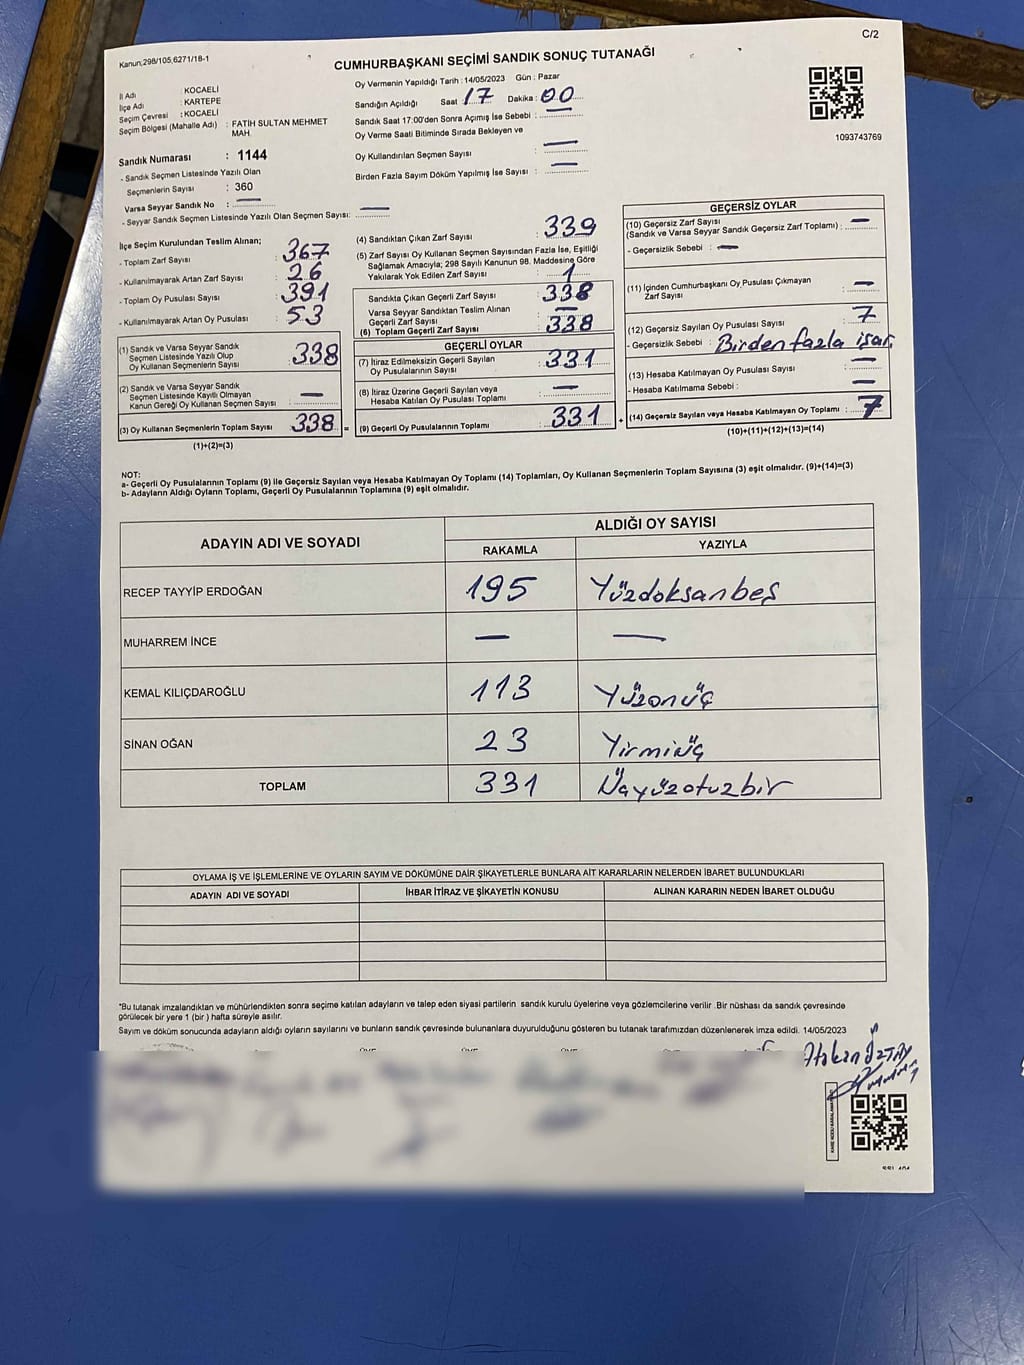 C/2
Kanun;298/105,6271/18-1
CUMHURBAŞKANI SEÇİMİ SANDIK SONUÇ TUTANAĞI
İl Adı : KOCAELİ
İlçe Adı : KARTEPE
Seçim Çevresi : KOCAELİ
Seçim Bölgesi (Mahalle Adı) : FATİH SULTAN MEHMET MAH.
Sandık Numarası : 1144
- Sandık Seçmen Listesinde Yazılı Olan
Seçmenlerin Sayısı : 360
Varsa Seyyar Sandık No : —
- Seyyar Sandık Seçmen Listesinde Yazılı Olan Seçmen Sayısı: —
Oy Vermenin Yapıldığı Tarih : 14/05/2023 Gün : Pazar
Sandığın Açıldığı Saat 17 Dakika : 00
Sandık Saat 17:00'den Sonra Açımış İse Sebebi : —
Oy Verme Saati Bitiminde Sırada Bekleyen ve
Oy Kullandırılan Seçmen Sayısı : —
Birden Fazla Sayım Döküm Yapılmış İse Sayısı : —
1093743769
İlçe Seçim Kurulundan Teslim Alınan;
- Toplam Zarf Sayısı : 367
- Kullanılmayarak Artan Zarf Sayısı : 26
- Toplam Oy Pusulası Sayısı : 391
- Kullanılmayarak Artan Oy Pusulası : 53
(1) Sandık ve Varsa Seyyar Sandık
Seçmen Listesinde Yazılı Olup
Oy Kullanan Seçmenlerin Sayısı : 338
(2) Sandık ve Varsa Seyyar Sandık
Seçmen Listesinde Kayıtlı Olmayan
Kanun Gereği Oy Kullanan Seçmen Sayısı : —
(3) Oy Kullanan Seçmenlerin Toplam Sayısı : 338 =
(1)+(2)=(3)
(4) Sandıktan Çıkan Zarf Sayısı : 339
(5) Zarf Sayısı Oy Kullanan Seçmen Sayısından Fazla İse, Eşitliği
Sağlamak Amacıyla; 298 Sayılı Kanunun 98. Maddesine Göre
Yakılarak Yok Edilen Zarf Sayısı : 1
Sandıkta Çıkan Geçerli Zarf Sayısı : 338
Varsa Seyyar Sandıktan Teslim Alınan
Geçerli Zarf Sayısı : —
(6) Toplam Geçerli Zarf Sayısı : 338
GEÇERLİ OYLAR
(7) İtiraz Edilmeksizin Geçerli Sayılan
Oy Pusulasının Sayısı : 331
(8) İtiraz Üzerine Geçerli Sayılan veya
Hesaba Katılan Oy Pusulası Toplamı : —
(9) Geçerli Oy Pusulalarının Toplamı : 331 +
GEÇERSİZ OYLAR
(10) Geçersiz Zarf Sayısı
(Sandık ve Varsa Seyyar Sandık Geçersiz Zarf Toplamı) : —
- Geçersizlik Sebebi : —
(11) İçinden Cumhurbaşkanı Oy Pusulası Çıkmayan
Zarf Sayısı : —
(12) Geçersiz Sayılan Oy Pusulası Sayısı : 7
- Geçersizlik Sebebi : Birden fazla işar.
(13) Hesaba Katılmayan Oy Pusulası Sayısı : —
- Hesaba Katılmama Sebebi : —
(14) Geçersiz Sayılan veya Hesaba Katılmayan Oy Toplamı : 7
(10)+(11)+(12)+(13)=(14)
NOT:
a- Geçerli Oy Pusulalarının Toplamı (9) ile Geçersiz Sayılan veya Hesaba Katılmayan Oy Toplamı (14) Toplamları, Oy Kullanan Seçmenlerin Toplam Sayısına (3) eşit olmalıdır. (9)+(14)=(3)
b- Adayların Aldığı Oyların Toplamı, Geçerli Oy Pusulalarının Toplamına (9) eşit olmalıdır.
ADAYIN ADI VE SOYADI ALDIĞI OY SAYISI
RAKAMLA YAZIYLA
RECEP TAYYİP ERDOĞAN 195 Yüzdoksanbeş
MUHARREM İNCE — —
KEMAL KILIÇDAROĞLU 113 Yüzonüç
SİNAN OĞAN 23 Yirmiüç
TOPLAM 331 Üçyüzotuzbir
OYLAMA İŞ VE İŞLEMLERİNE VE OYLARIN SAYIM VE DÖKÜMÜNE DAİR ŞİKAYETLERLE BUNLARA AİT KARARLARIN NELERDEN İBARET BULUNDUKLARI
ADAYIN ADI VE SOYADI İHBAR İTİRAZ VE ŞİKAYETİN KONUSU ALINAN KARARIN NEDEN İBARET OLDUĞU
*Bu tutanak imzalandıktan ve mühürlendikten sonra seçime katılan adayların ve talep eden siyasi partilerin sandık kurulu üyelerine veya gözlemcilerine verilir .Bir nüshası da sandık çevresinde
görülecek bir yere 1 (bir ) hafta süreyle asılır.
Sayım ve döküm sonucunda adayların aldığı oyların sayılarını ve bunların sandık çevresinde bulunanlara duyurulduğunu gösteren bu tutanak tarafımızdan düzenlenerek imza edildi. 14/05/2023